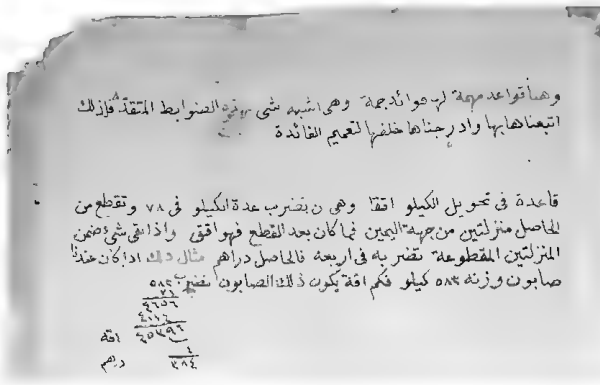 وهنا قواعد مهمة لها فوائد جمة وهى اشبه شى بهذه الضوابط المتقدمة فلذلك
اتبعناها بها وادرجناها خلفها لتعميم الفائدة
قاعدة فى تحويل الكيلو اققا وهى ان تضرب عدة الكيلو فى ٧٨ وتقطع من
الحاصل منزلتين من جهة اليمين فما كان بعد القطع فهو اقق واذا بقى شئ ضمن
المنزلتين المقطوعة تضربه فى اربعه فالحاصل دراهم مثال ذلك اذا كان عندنا
صابون وزنه ٥٨٢ كيلو فكم اقة يكون ذلك الصابون نضرب
٥٨٢
٧٨
٤٦٥٦
اقه ٤٥٣٩٦
٤
درهم ٣٨٤